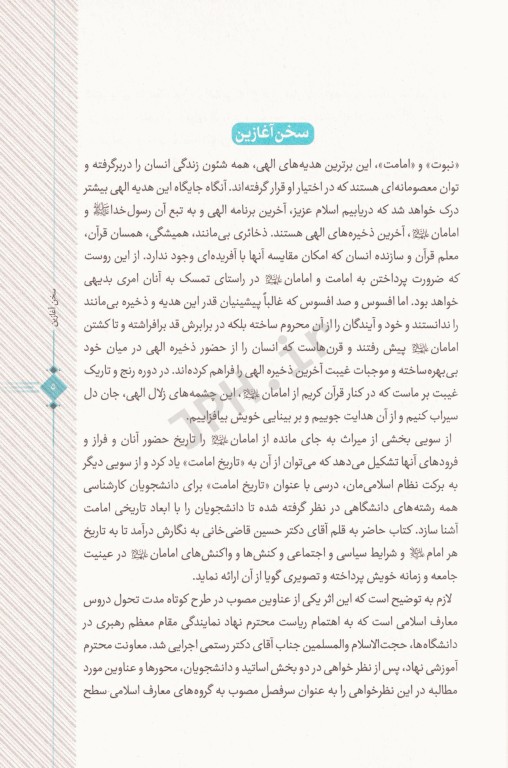 سخن آغازین
«نبوت» و «امامت»، این برترین هدیه‌های الهی، همه شئون زندگی انسان را دربرگرفته و
توان معصومانه‌ای هستند که در اختیار او قرار گرفته‌اند. آنگاه جایگاه این هدیه الهی بیشتر
درک خواهد شد که دریابیم اسلام عزیز، آخرین برنامه الهی و به تبع آن رسول‌خدا ﷺ و
امامان ، آخرین ذخیره‌های الهی هستند. ذخائری بی‌مانند، همیشگی، همسان قرآن،
معلم قرآن و سازنده انسان که امکان مقایسه آنها با آفریده‌ای وجود ندارد. از این روست
که ضرورت پرداختن به امامت و امامان در راستای تمسک به آنان امری بدیهی
خواهد بود. اما افسوس و صد افسوس که غالباً پیشینیان قدر این هدیه و ذخیره بی‌مانند
را ندانستند و خود و آیندگان را از آن محروم ساخته بلکه در برابرش قد برافراشته و تا کشتن
امامان پیش رفتند و قرن‌هاست که انسان را از حضور ذخیره الهی در میان خود
بی‌بهره‌ساخته و موجبات غیبت آخرین ذخیره الهی را فراهم کرده‌اند. در دوره رنج و تاریک
غیبت بر ماست که در کنار قرآن کریم از امامان ، این چشمه‌های زلال الهی، جان دل
سیراب کنیم و از آن هدایت جوییم و بر بینایی خویش بیافزاییم.
از سویی بخشی از میراث به جای مانده از امامان را تاریخ حضور آنان و فراز و
فرودهای آنها تشکیل می‌دهد که می‌توان از آن به «تاریخ امامت» یاد کرد و از سویی دیگر
به برکت نظام اسلامی‌مان، درسی با عنوان «تاریخ امامت» برای دانشجویان کارشناسی
همه رشته‌های دانشگاهی در نظر گرفته شده تا دانشجویان را با ابعاد تاریخی امامت
آشنا سازد. کتاب حاضر به قلم آقای دکتر حسین قاضی‌خانی به نگارش درآمد تا به تاریخ
هر امام و شرایط سیاسی و اجتماعی و کنش‌ها و واکنش‌های امامان در عینیت
جامعه و زمانه خویش پرداخته و تصویری گویا از آن ارائه نماید.
لازم به توضیح است که این اثر یکی از عناوین مصوب در طرح کوتاه مدت تحول دروس
معارف اسلامی است که به اهتمام ریاست محترم نهاد نمایندگی مقام معظم رهبری در
دانشگاه‌ها، حجت‌الاسلام والمسلمین جناب آقای دکتر رستمی اجرایی شد. معاونت محترم
آموزشی نهاد، پس از نظر خواهی در دو بخش اساتید و دانشجویان، محورها و عناوین مورد
مطالبه در این نظرخواهی را به عنوان سرفصل مصوب به گروه‌های معارف اسلامی سطح
سخن آغازین
۵
JPH.ir